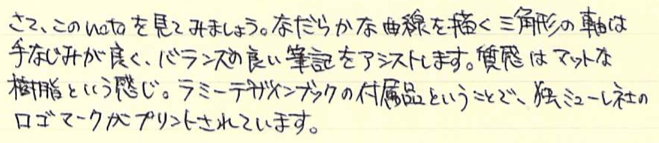 さて、このnotoを見てみましょう。なだらかな曲線を描く三角形の軸は
手なじみが良く、バランスの良い筆記をアシストします。質感はマットな
樹脂という感じ。ラミーデザインブックの付属品ということで、独ミューレ社の
ロゴマークがプリントされています。